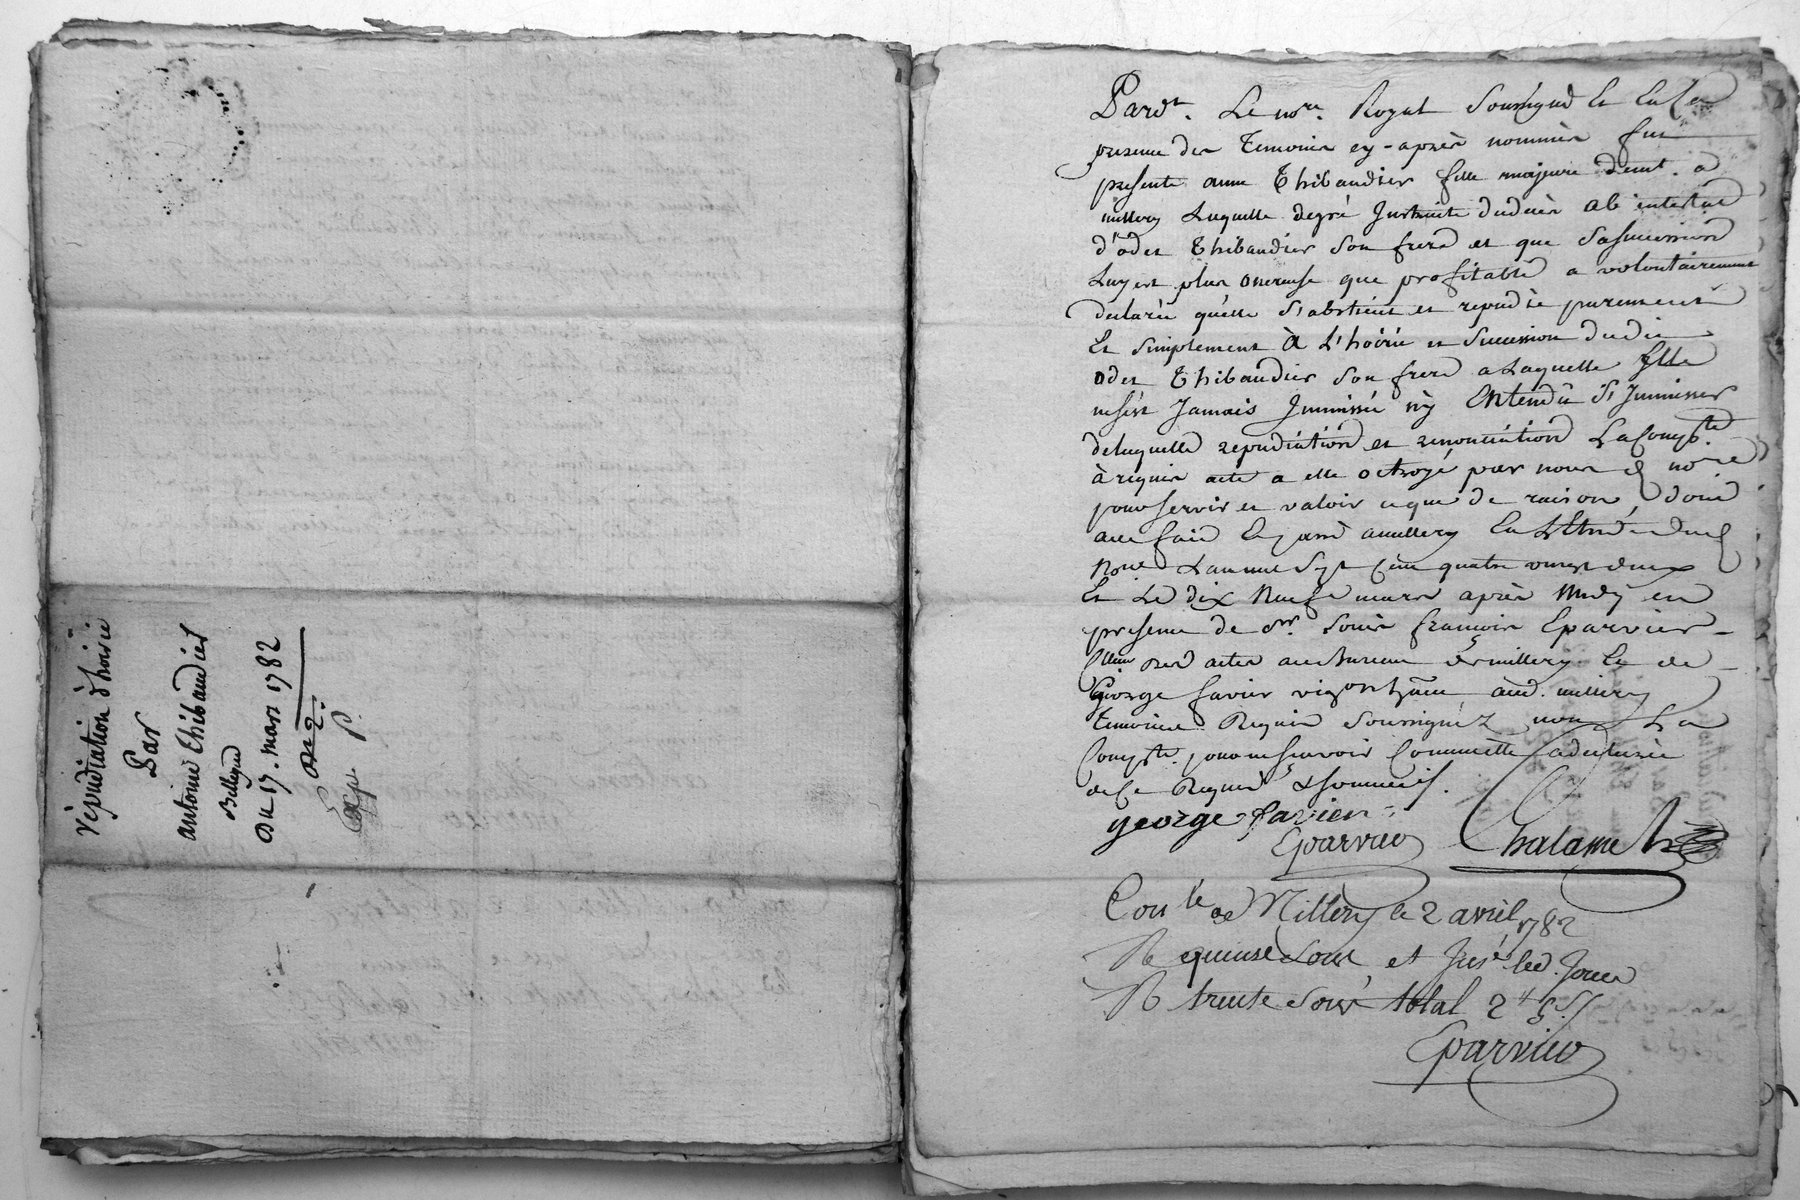 répudiation d'hoirie
Par
antoine thibaudier
Du 17. mars 1782
Exp. p.
Pard.t Le no.re Royal Soussigné Et En la
presence des temoins cy-après nommés fut
presente anne Thibaudier fille majeure dem.t a
millery Laquelle degré Instruite du décès ab intestat
d'odet Thibaudier Son frere et que Sa succession
Luy est plus onereuse que profitable a volontairement
declaré qu'elle S'abstient et repudie purement
Et Simplement à L'hoirie et Succession dudit
odet Thibaudier Son frere a Laquelle Elle
ne s'est Jamais Immissée ny Entendu S'Immisser
de laquelle repudiation et renonciation La Comp.te
à requis acte a elle octroyé par nous d. no.re
pour servir et valoir ce que de raison, dont
acte fait Et passé a millery En L'Etude dud.
No.re L'an mil Sept Cent quatre vingt deux
Et Le dix Neuf mars après Midy en
presence de Sr. Louis françois Eparvier
Com.is des actes au bureau de millery Et de
George favier vigneron aud. millery
temoins Requis Soussignéz non La
Comp.te pour ne scavoir Comme elle a declaré
de Ce Requise & sommée.
george favier
Eparvier Chalamel
Con.lé de Millery le 2 avril 1782
R quinse Sous et Ins.é led. Jour
R trente Sous total 2# 5s.
Eparvier